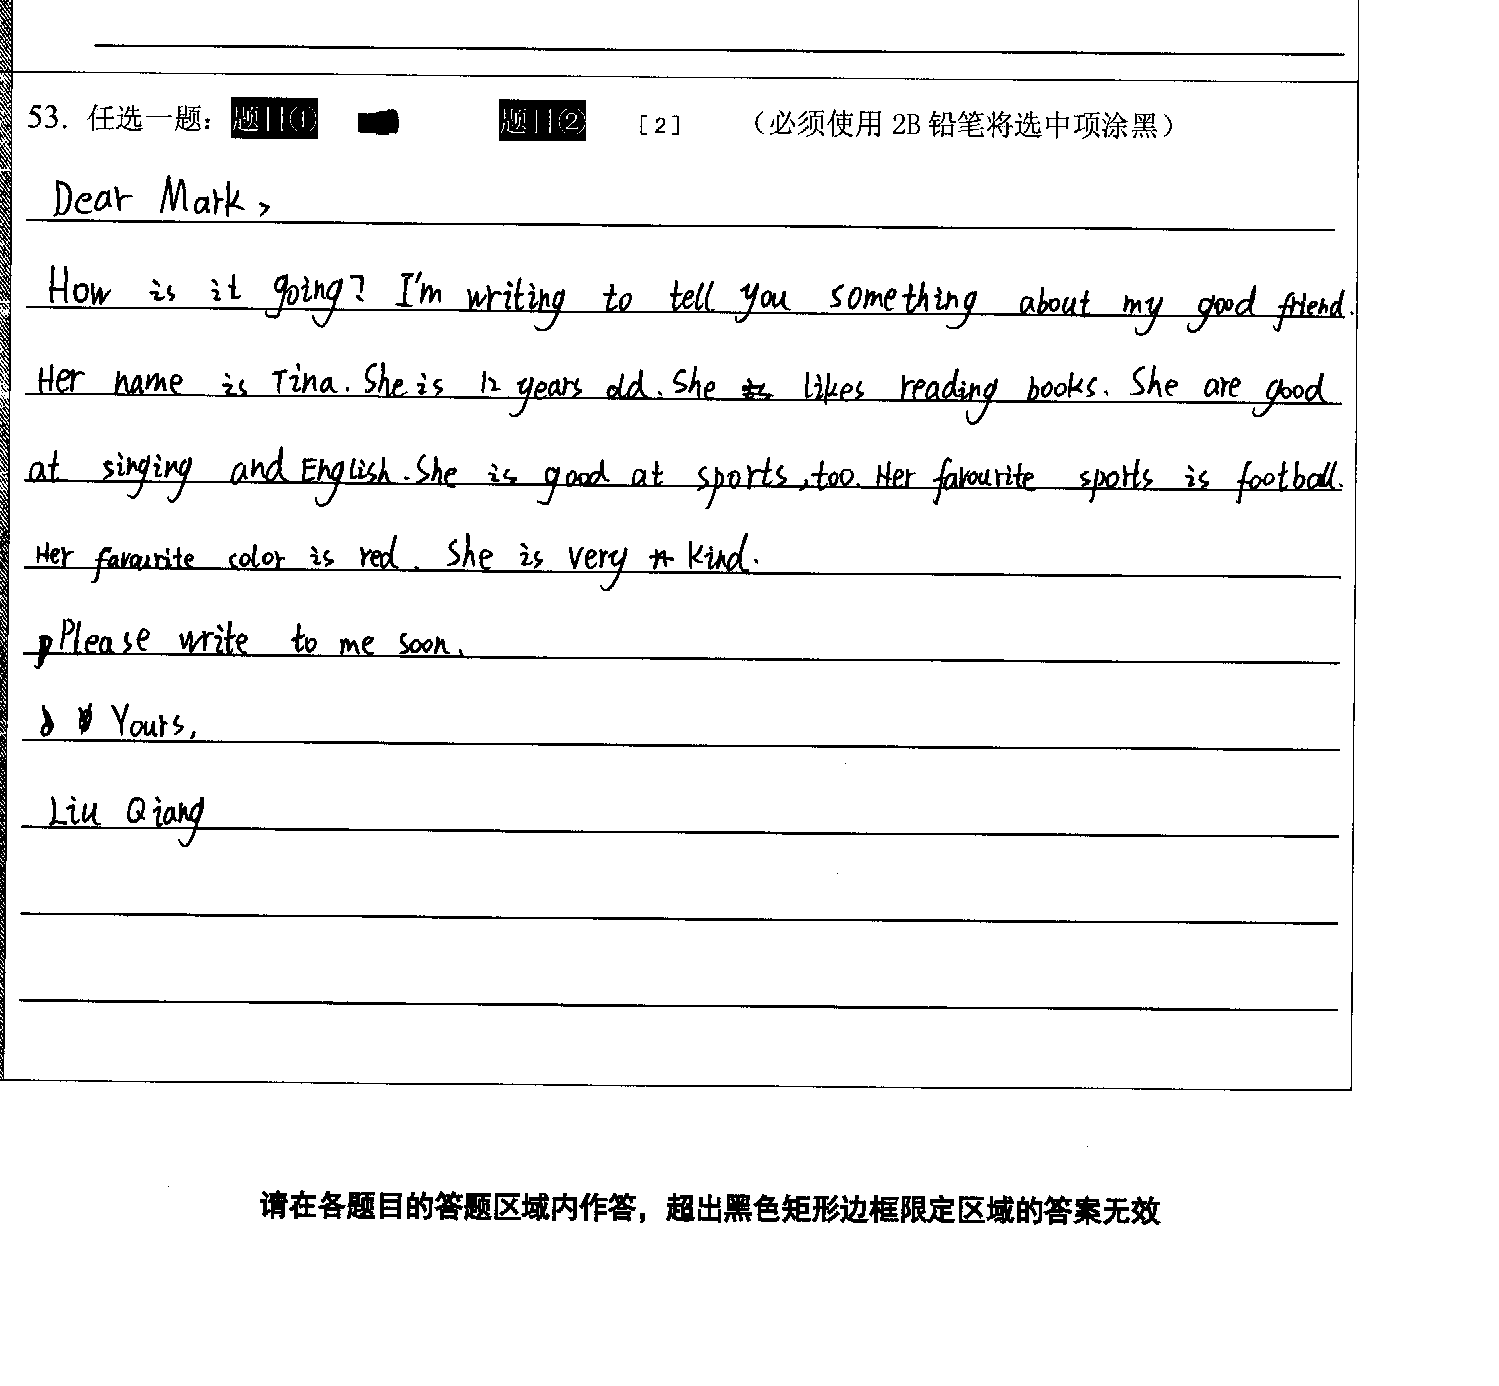 53. 任选一题： 题目① 题目② [2] （必须使用 2B 铅笔将选中项涂黑）
Dear Mark,
How is it going? I'm writing to tell you something about my good friend.
Her name is Tina. She is 12 years old. She likes reading books. She are good
at singing and English. She is good at sports, too. Her favourite sports is football.
Her favourite color is red. She is very kind.
Please write to me soon.
Yours,
Liu Qiang
请在各题目的答题区域内作答，超出黑色矩形边框限定区域的答案无效